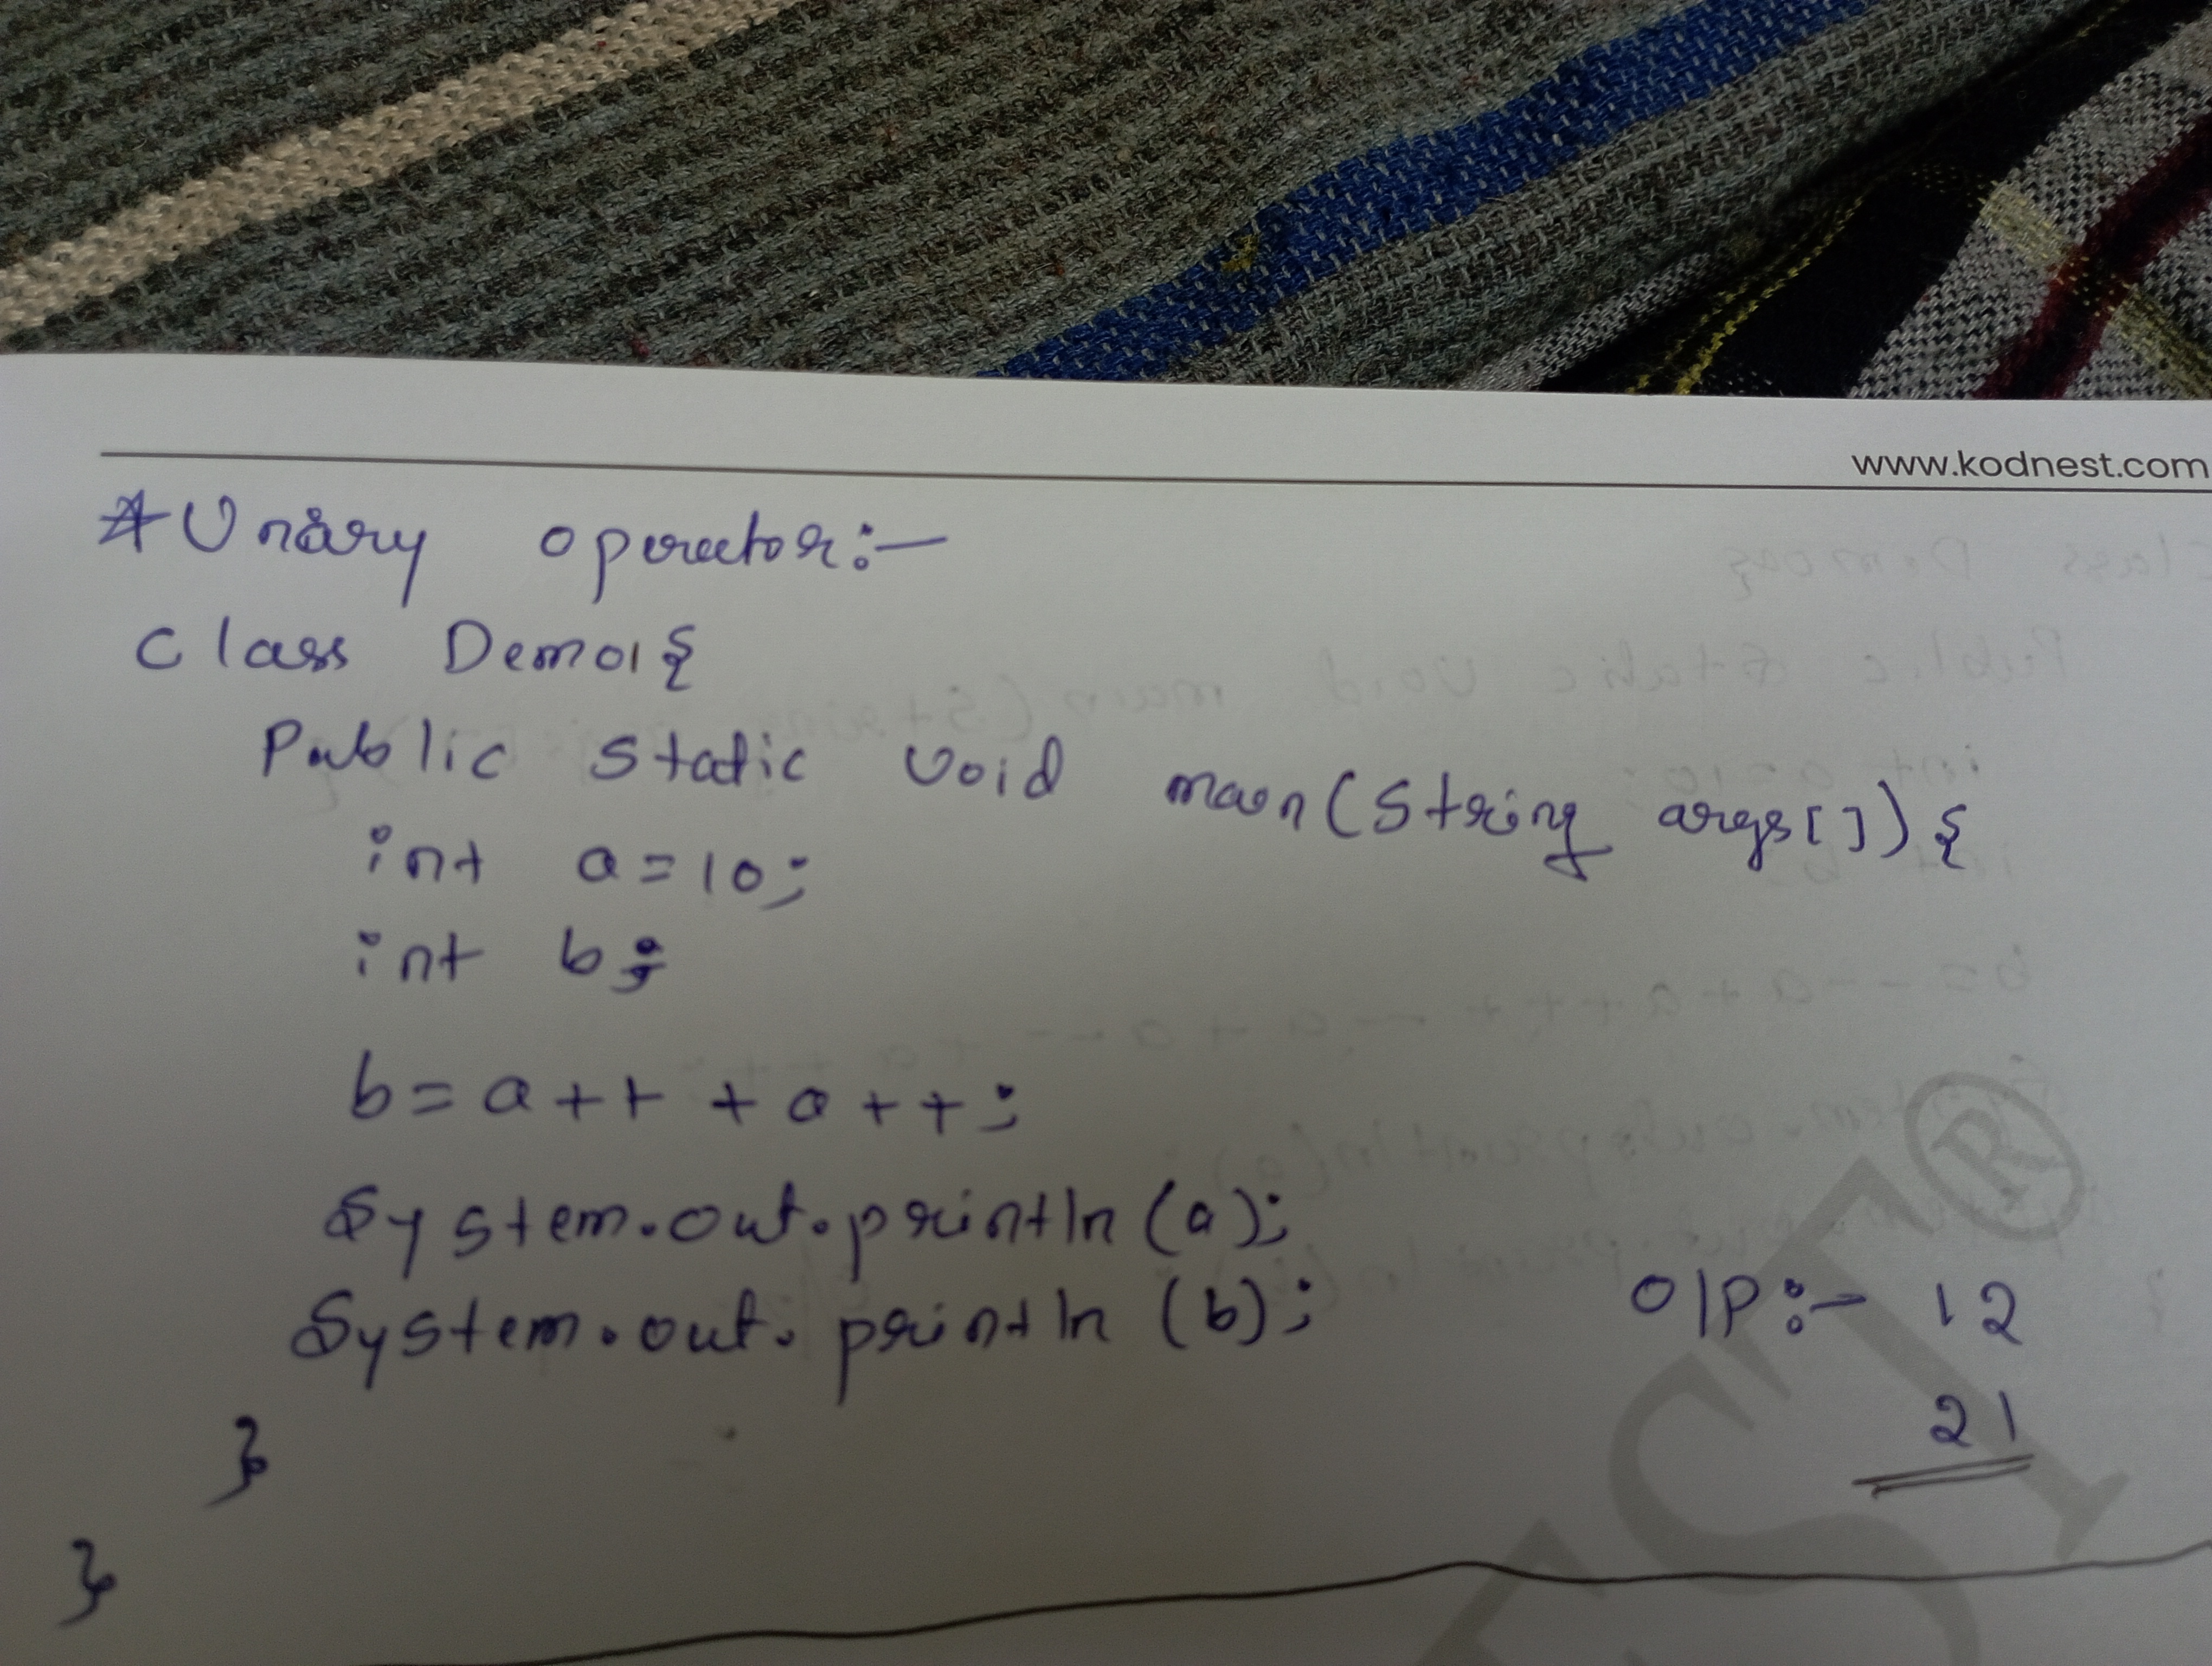 www.kodnest.com
* Unary operator:-
class Demo1{
Public static void main(String args[]){
int a=10;
int b;
b=a++ + a++;
System.out.println(a);
System.out.println(b);
O/P:- 12
21
}
}
®
ST